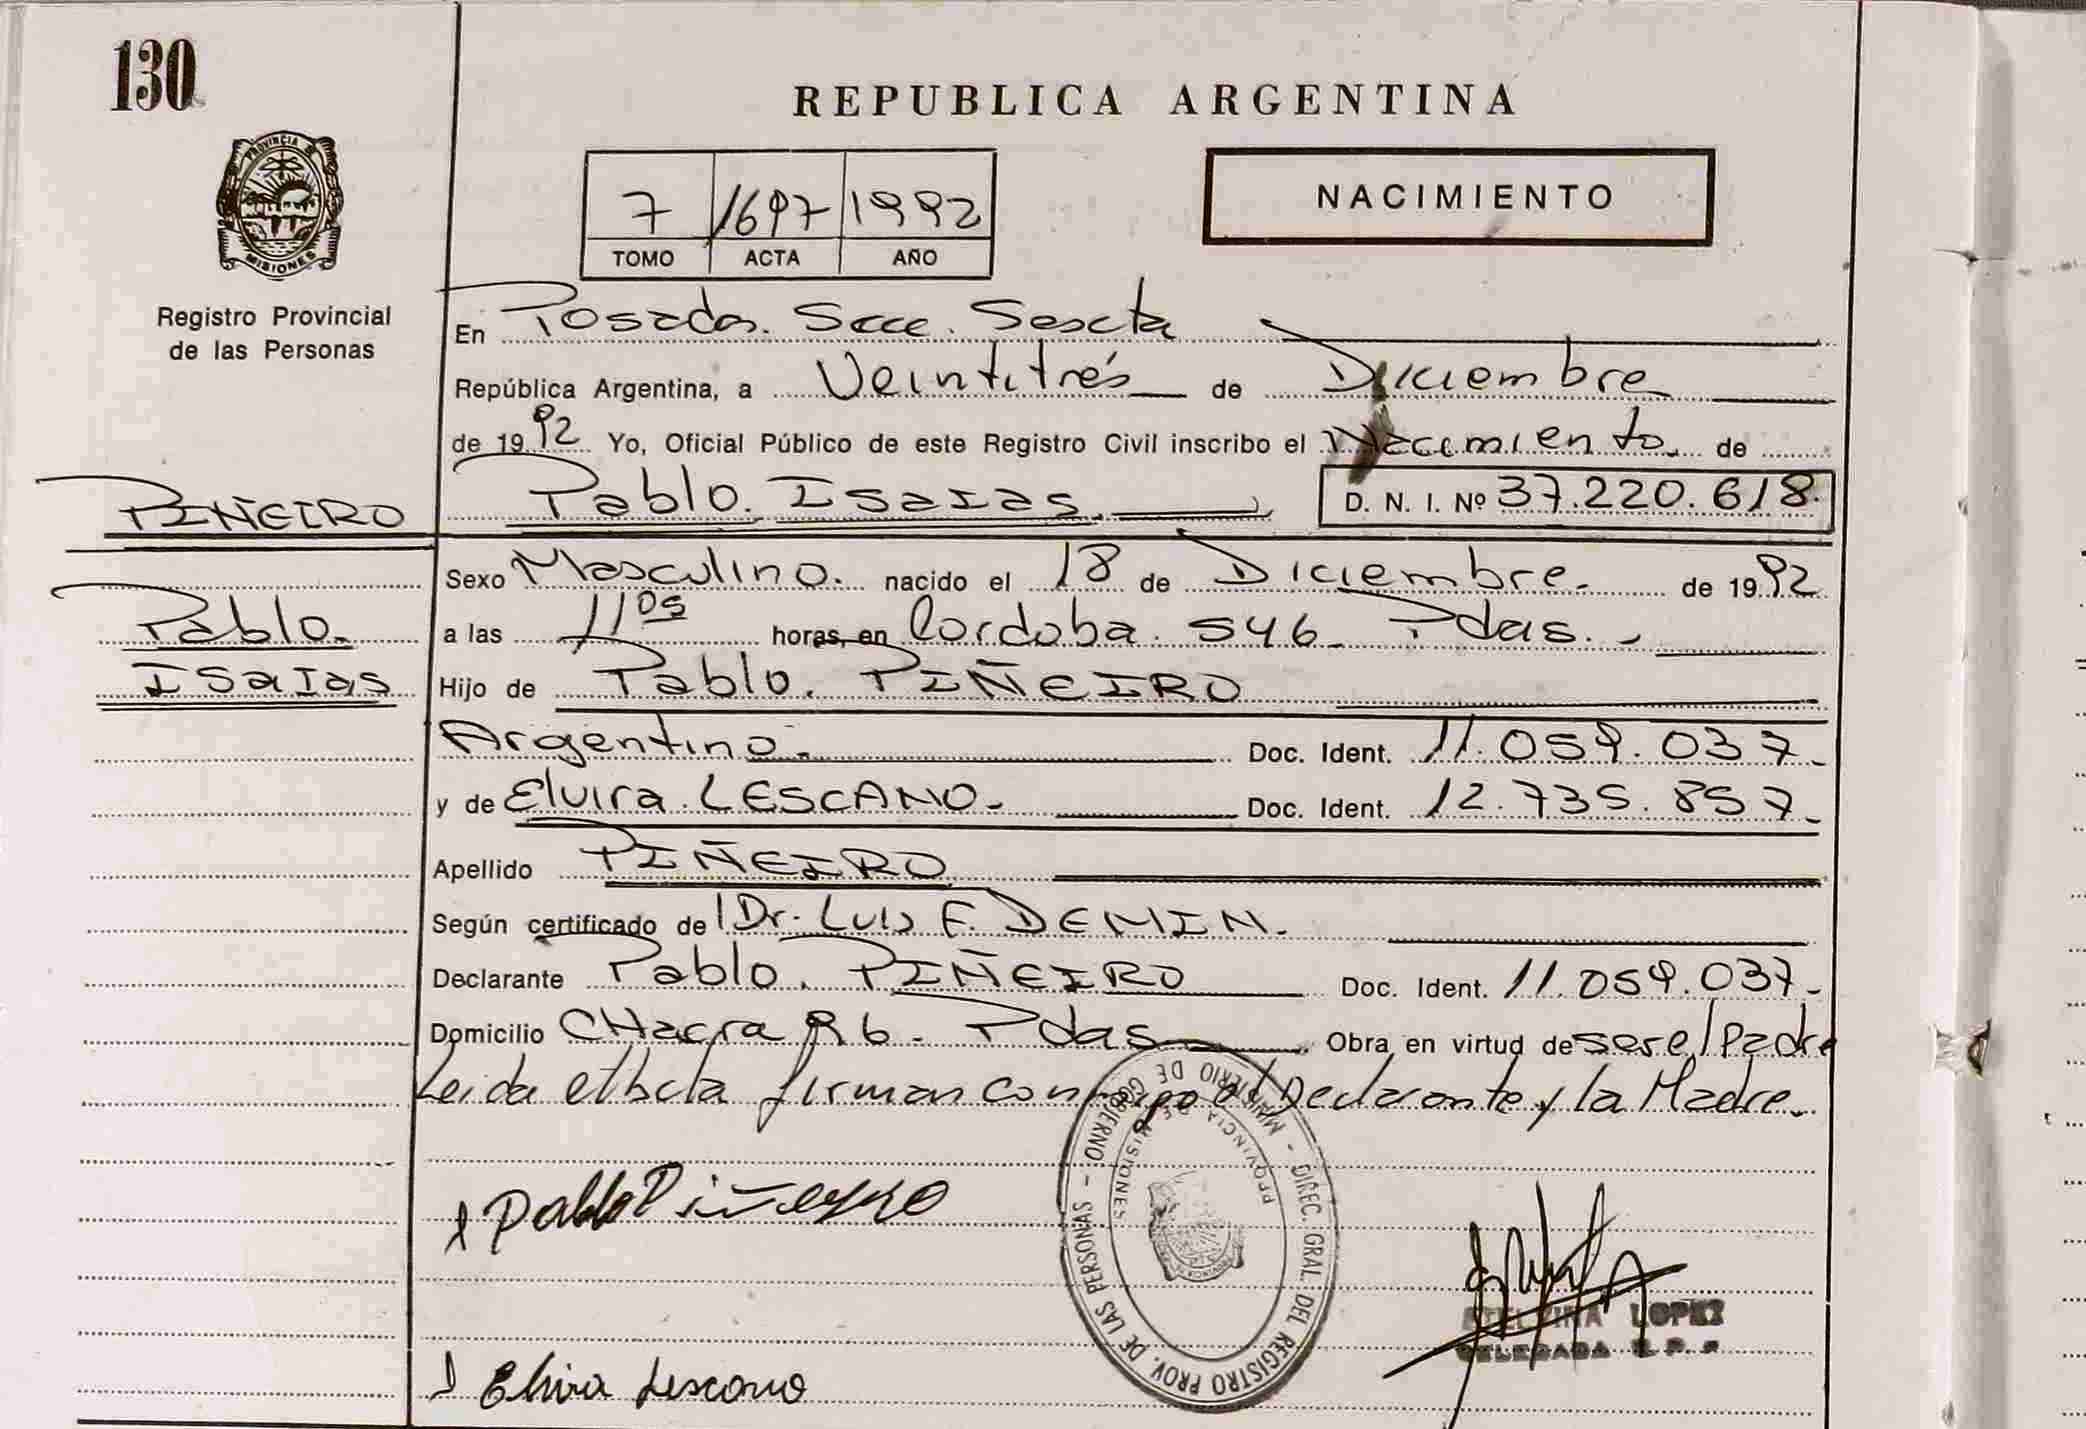 130
REPUBLICA ARGENTINA
PROVINCIA DE
MISIONES
Registro Provincial
de las Personas
7 1697 1992
TOMO ACTA AÑO
NACIMIENTO
En Posadas. Secc. Sexcta
República Argentina, a Veintitrés de Diciembre
de 1992 Yo, Oficial Público de este Registro Civil inscribo el Nacimiento de
PIÑEIRO Pablo. Isaias. D. N. I. Nº 37.220.618.
Sexo Masculino. nacido el 18 de Diciembre. de 1992
Pablo. a las 11 05 horas, en Cordoba. 546. Pdas.
Isaias Hijo de Pablo. PIÑEIRO
Argentino. Doc. Ident. 11.059.037.
y de Elvira. LESCANO. Doc. Ident. 12.735.857.
Apellido PIÑEIRO
Según certificado de Dr. Luis F. DEMIN.
Declarante Pablo. PIÑEIRO Doc. Ident. 11.059.037.
Domicilio CHacra 96. Pdas Obra en virtud de ser el Padre
Leida el firman conmigo el Declarante y la Madre.
Pablo Piñeyro
GOBIERNO - MINISTERIO DE - DIREC. GRAL. DEL REGISTRO PROV. DE LAS PERSONAS -
PROVINCIA DE MISIONES
LOPEZ
DELEGADA R.P.P
Elvira Lescano